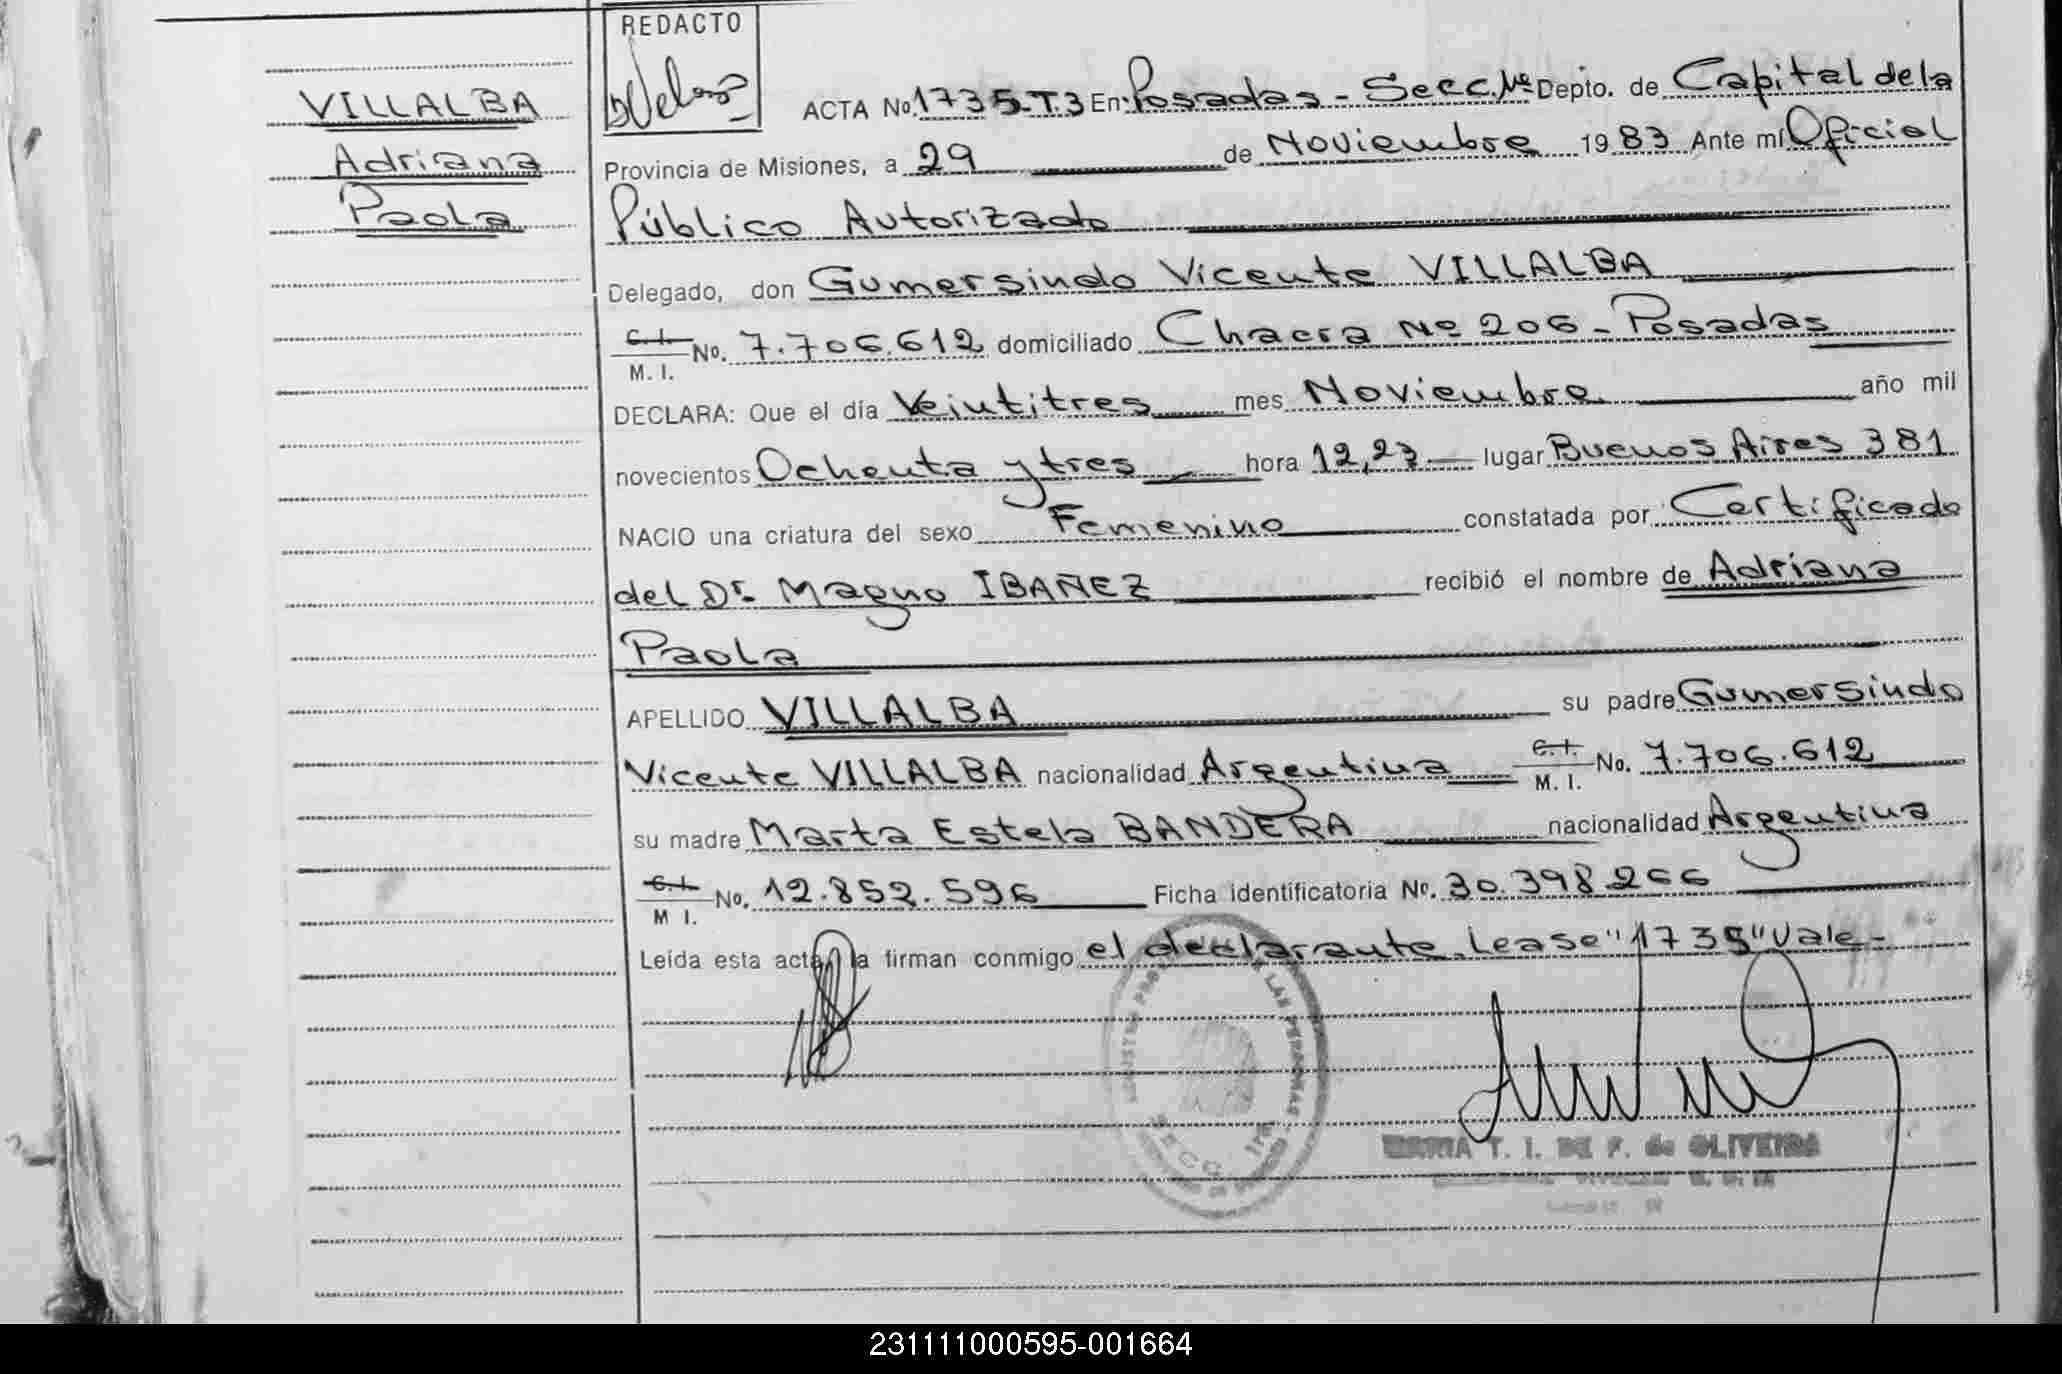 REDACTO
VILLALBA
Adriana
Paola
ACTA No. 1735-T.3 En: Posadas - Secc. Depto. de Capital de la
Provincia de Misiones, a 29 de Noviembre 1983 Ante mí Oficial
Público Autorizado
Delegado, don Gumersindo Vicente VILLALBA
C.I.
M. I. No. 7.706.612 domiciliado Chacra Nº 206 - Posadas
DECLARA: Que el día Veintitres mes Noviembre año mil
novecientos Ochenta y tres hora 12,23 lugar Buenos Aires 381
NACIO una criatura del sexo Femenino constatada por Certificado
del Dr. Magno IBAÑEZ recibió el nombre de Adriana
Paola
APELLIDO VILLALBA su padre Gumersindo
Vicente VILLALBA nacionalidad Argentina C.I. M. I. No. 7.706.612
su madre Marta Estela BANDERA nacionalidad Argentina
C.I.
M I. No. 12.852.596 Ficha identificatoria No. 30.398.266
Leída esta acta, la firman conmigo el declarante. Lease "1735" Vale-
LAS PERSONAS
SECC.
T. I. DE F. de OLIVEIRA
231111000595-001664